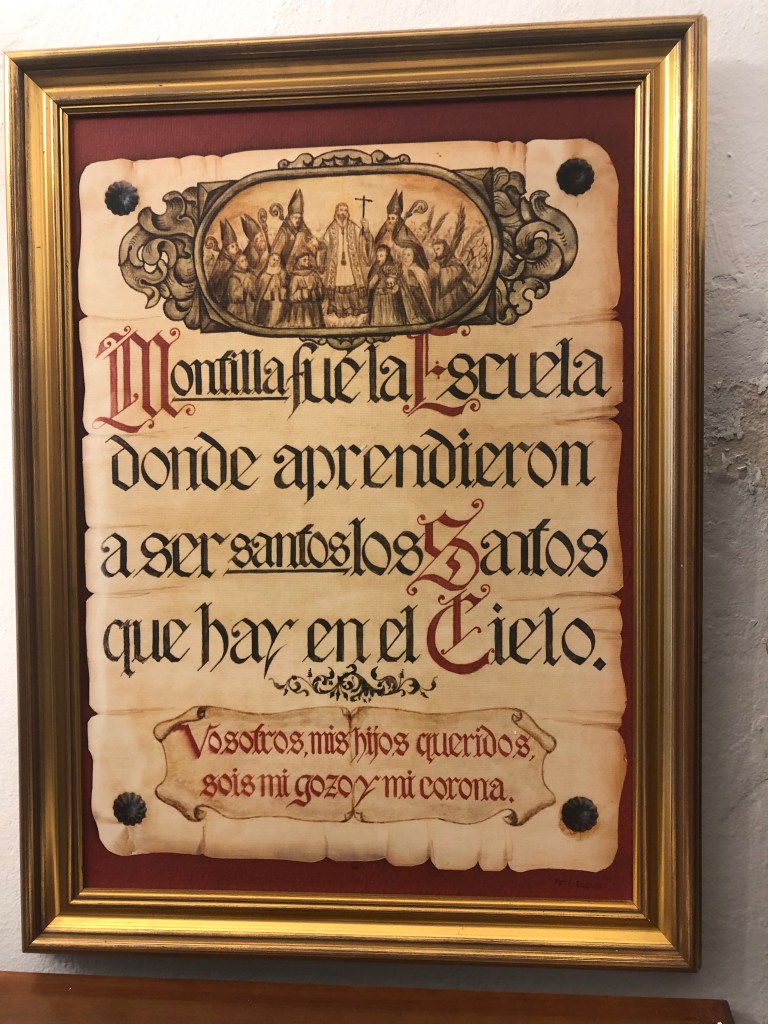 Montilla fué la Escuela
donde aprendieron
a ser santos los Santos
que hay en el Cielo.
Vosotros, mis hijos queridos,
sois mi gozo y mi corona.